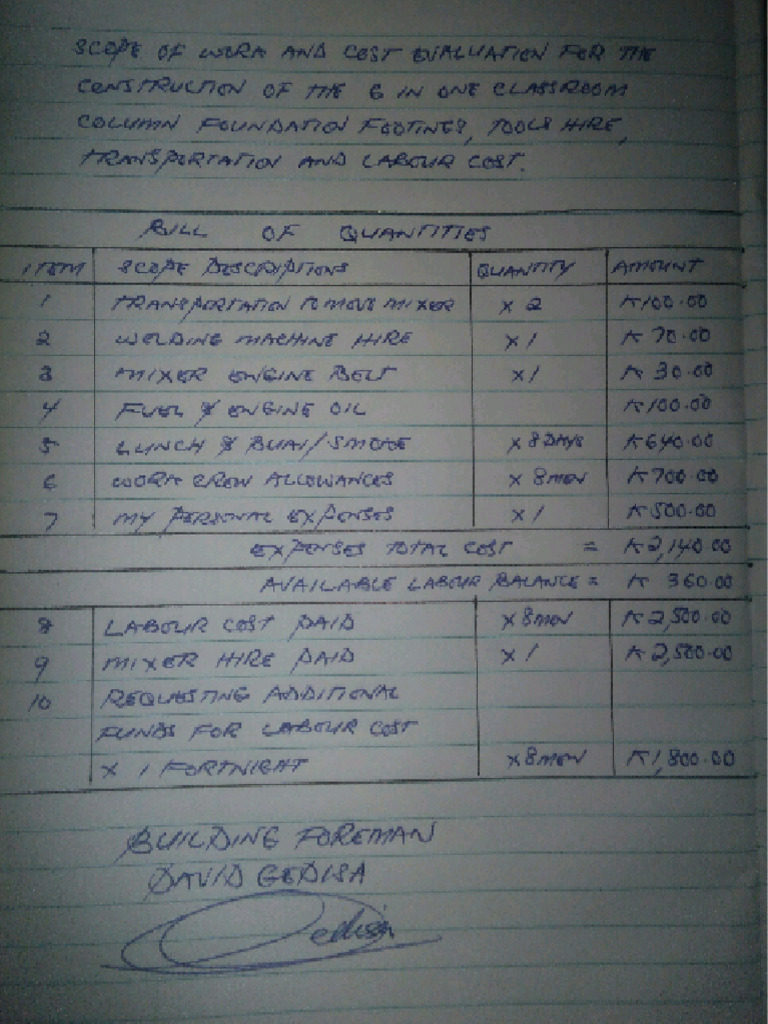 SCOPE OF WORK AND COST EVALUATION FOR THE
CONSTRUCTION OF THE 6 IN ONE CLASSROOM
COLUMN FOUNDATION FOOTINGS, TOOLS HIRE,
TRANSPORTATION AND LABOUR COST.
BILL OF QUANTITIES
ITEM SCOPE DESCRIPTIONS QUANTITY AMOUNT
1 TRANSPORTATION TO MOVE MIXER x 2 K100.00
2 WELDING MACHINE HIRE x 1 K 70.00
3 MIXER ENGINE BELT x 1 K 30.00
4 FUEL & ENGINE OIL K100.00
5 LUNCH & BUAI/SMOKE x 8 DAYS K640.00
6 WORK CREW ALLOWANCES x 8 MEN K700.00
7 MY PERSONAL EXPENSES x 1 K500.00
EXPENSES TOTAL COST = K2,140.00
AVAILABLE LABOUR BALANCE = K 360.00
8 LABOUR COST PAID x 8 MEN K2,500.00
9 MIXER HIRE PAID x 1 K2,500.00
10 REQUESTING ADDITIONAL
FUNDS FOR LABOUR COST
x 1 FORTNIGHT x 8 MEN K1,800.00
BUILDING FOREMAN
DAVID GEDISA
Gedisa